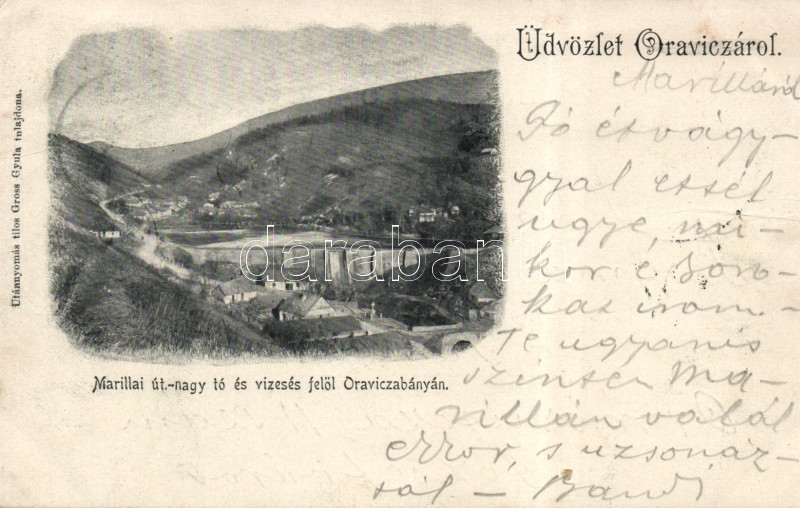 Üdvözlet Oraviczáról.
Utánnyomás tilos Gross Gyula tulajdona.
darabanth
Marillai út.-nagy tó és vizesés felöl Oraviczabányán.
Marilláról
Jó étvágy-
gyal ettél
ugye, mi-
kor e soro-
kat irom-
Te ugyanis
szinten Ma-
rillán valál
ekkor, s uzsonáz-
tál – Bandi